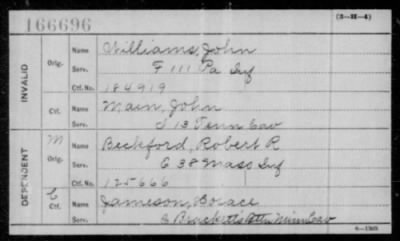 166696
(3-H-4)
INVALID
Orig.
Name Williams, John
Serv. F 111 Pa Inf
Ctf. No. 184919
Ctf.
Name Main, John
Serv. 13 Tenn Cav
DEPENDENT
M
Orig.
Name Beckford, Robert R
Serv. C 38 Mass Inf
Ctf. No. 125666
C
Ctf.
Name Jameson, Horace
Serv. Bracketts Minn Cav